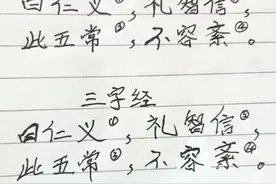 曰仁义①,礼智信②,
此五常③,不容紊④。
三字经
曰仁义①,礼智信②,
此五常③,不容紊④。